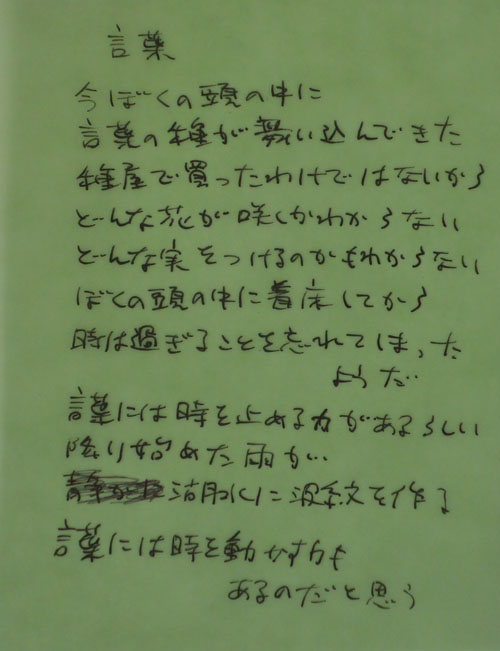 言葉
今ぼくの頭の中に
言葉の種が舞い込んできた
種屋で買ったわけではないから
どんな花が咲くかわからない
どんな実をつけるのかもわからない
ぼくの頭の中に着床してから
時は過ぎることを忘れてしまった
ようだ‥
言葉には時を止める力があるらしい
降り始めた雨が‥
に波紋を作る
言葉には時を動かす力も
あるのだと思う